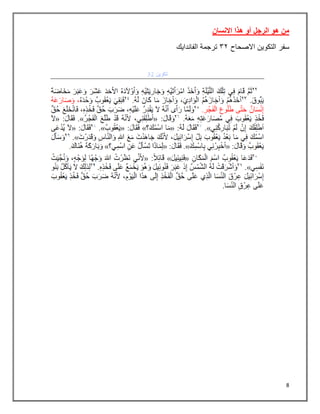 من هو الرجل أو هذا الانسان
سفر التكوين الاصحاح ٣٢ ترجمة الفاندايك
تكوين 32
²²ثُمَّ قَامَ فِي تِلْكَ اللَّيْلَةِ وَأَخَذَ امْرَأَتَيْهِ وَجَارِيَتَيْهِ وَأَوْلاَدَهُ الأَحَدَ عَشَرَ وَعَبَرَ مَخَاضَةَ
يَبُّوقَ. ²³أَخَذَهُمْ وَأَجَازَهُمُ الْوَادِيَ، وَأَجَازَ مَا كَانَ لَهُ. ²⁴فَبَقِيَ يَعْقُوبُ وَحْدَهُ، وَصَارَعَهُ
إِنْسَانٌ حَتَّى طُلُوعِ الْفَجْرِ. ²⁵وَلَمَّا رَأَى أَنَّهُ لاَ يَقْدِرُ عَلَيْهِ، ضَرَبَ حُقَّ فَخْذِهِ، فَانْخَلَعَ حُقُّ
فَخْذِ يَعْقُوبَ فِي مُصَارَعَتِهِ مَعَهُ. ²⁶وَقَالَ: «أَطْلِقْنِي، لأَنَّهُ قَدْ طَلَعَ الْفَجْرُ». فَقَالَ: «لاَ
أُطْلِقُكَ إِنْ لَمْ تُبَارِكْنِي». ²⁷فَقَالَ لَهُ: «مَا اسْمُكَ؟» فَقَالَ: «يَعْقُوبُ». ²⁸فَقَالَ: «لاَ يُدْعَى
اسْمُكَ فِي مَا بَعْدُ يَعْقُوبَ بَلْ إِسْرَائِيلَ، لأَنَّكَ جَاهَدْتَ مَعَ اللهِ وَالنَّاسِ وَقَدَرْتَ». ²⁹وَسَأَلَ
يَعْقُوبُ وَقَالَ: «أَخْبِرْنِي بِاسْمِكَ». فَقَالَ: «لِمَاذَا تَسْأَلُ عَنِ اسْمِي؟» وَبَارَكَهُ هُنَاكَ.
³⁰فَدَعَا يَعْقُوبُ اسْمَ الْمَكَانِ «فَنِيئِيلَ» قَائِلاً: «لأَنِّي نَظَرْتُ اللهَ وَجْهًا لِوَجْهٍ، وَنُجِّيَتْ
نَفْسِي». ³¹وَأَشْرَقَتْ لَهُ الشَّمْسُ إِذْ عَبَرَ فَنُوئِيلَ وَهُوَ يَخْمَعُ عَلَى فَخْذِهِ. ³²لِذلِكَ لاَ يَأْكُلُ بَنُو
إِسْرَائِيلَ عِرْقَ النَّسَا الَّذِي عَلَى حُقِّ الْفَخِذِ إِلَى هذَا الْيَوْمِ، لأَنَّهُ ضَرَبَ حُقَّ فَخْذِ يَعْقُوبَ
عَلَى عِرْقِ النَّسَا.
8